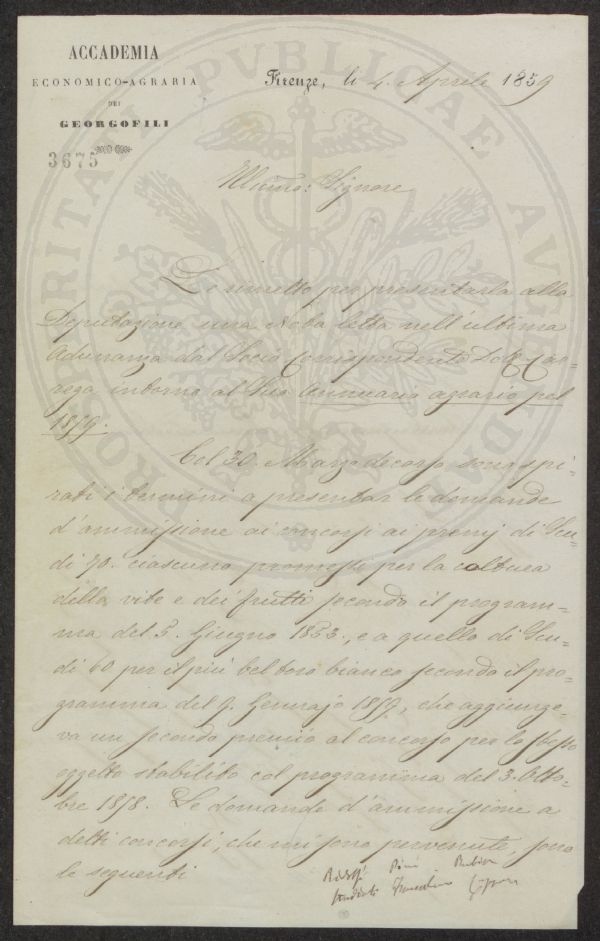 ACCADEMIA
ECONOMICO-AGRARIA
DEI
GEORGOFILI
3675
Firenze, li 4. Aprile 1859
Illmo: Signore
Le rimetto per presentarla alla
Deputazione una Nota letta nell'ultima
Adunanza dal Socio Corrispondente Dott.
intorno al Suo Annuario agrario pel
1859.
Col 30. Marzo decorso sono spi=
rati i termini a presentar le domande
d'ammissione ai concorsi ai premj di Scu=
di 70. ciascuno promessi per la coltura
della vite e dei frutti secondo il program=
ma del 5. Giugno 1853., e a quello di Scu=
di 60 per il più bel toro bianco secondo il pro=
gramma del 9. Gennajo 1859, che aggiunge=
va un secondo premio al concorso per lo stesso
oggetto stabilito col programma del 3. Otto=
bre 1858. Le domande d'ammissione a
detti concorsi, che mi sono pervenute, sono
le seguenti
PROSPERITATI PVBLICAE AVGENDAE